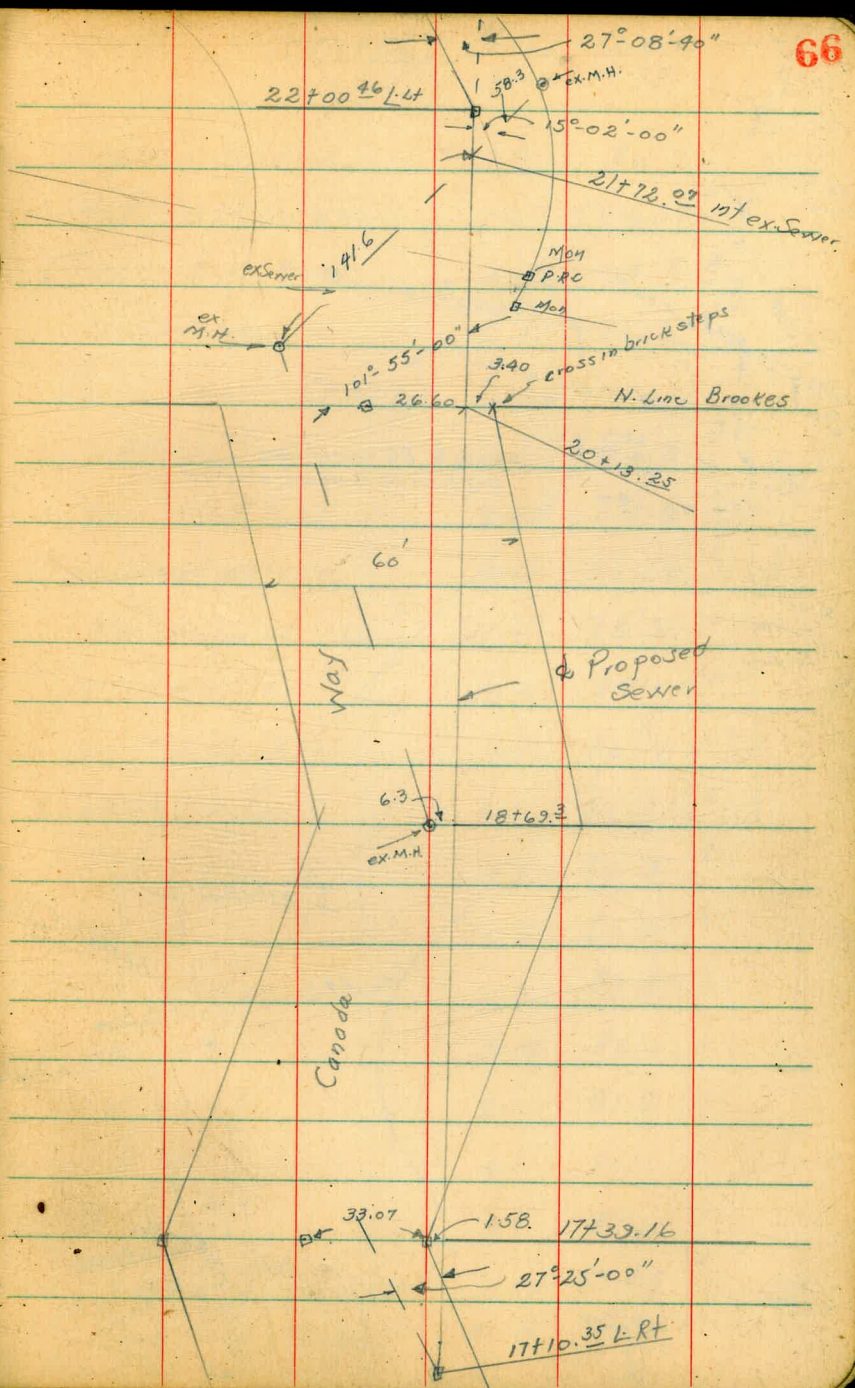 66
27°-08'-40"
58.3
ex.M.H.
22+00.46 L.Lt
15°-02'-00"
21+72.07 int ex.Sewer
141.6
Mon
P.R.C
ex Sewer
Mon
ex
M.H.
101°-55'-00"
3.40
cross in brick steps
26.60
N. Line Brookes
20+13.25
60'
Way
℄ Proposed
Sewer
6.3
18+69.3
ex.M.H.
Canada
33.07
1.58
17+39.16
27°-25'-00"
17+10.35 L.Rt